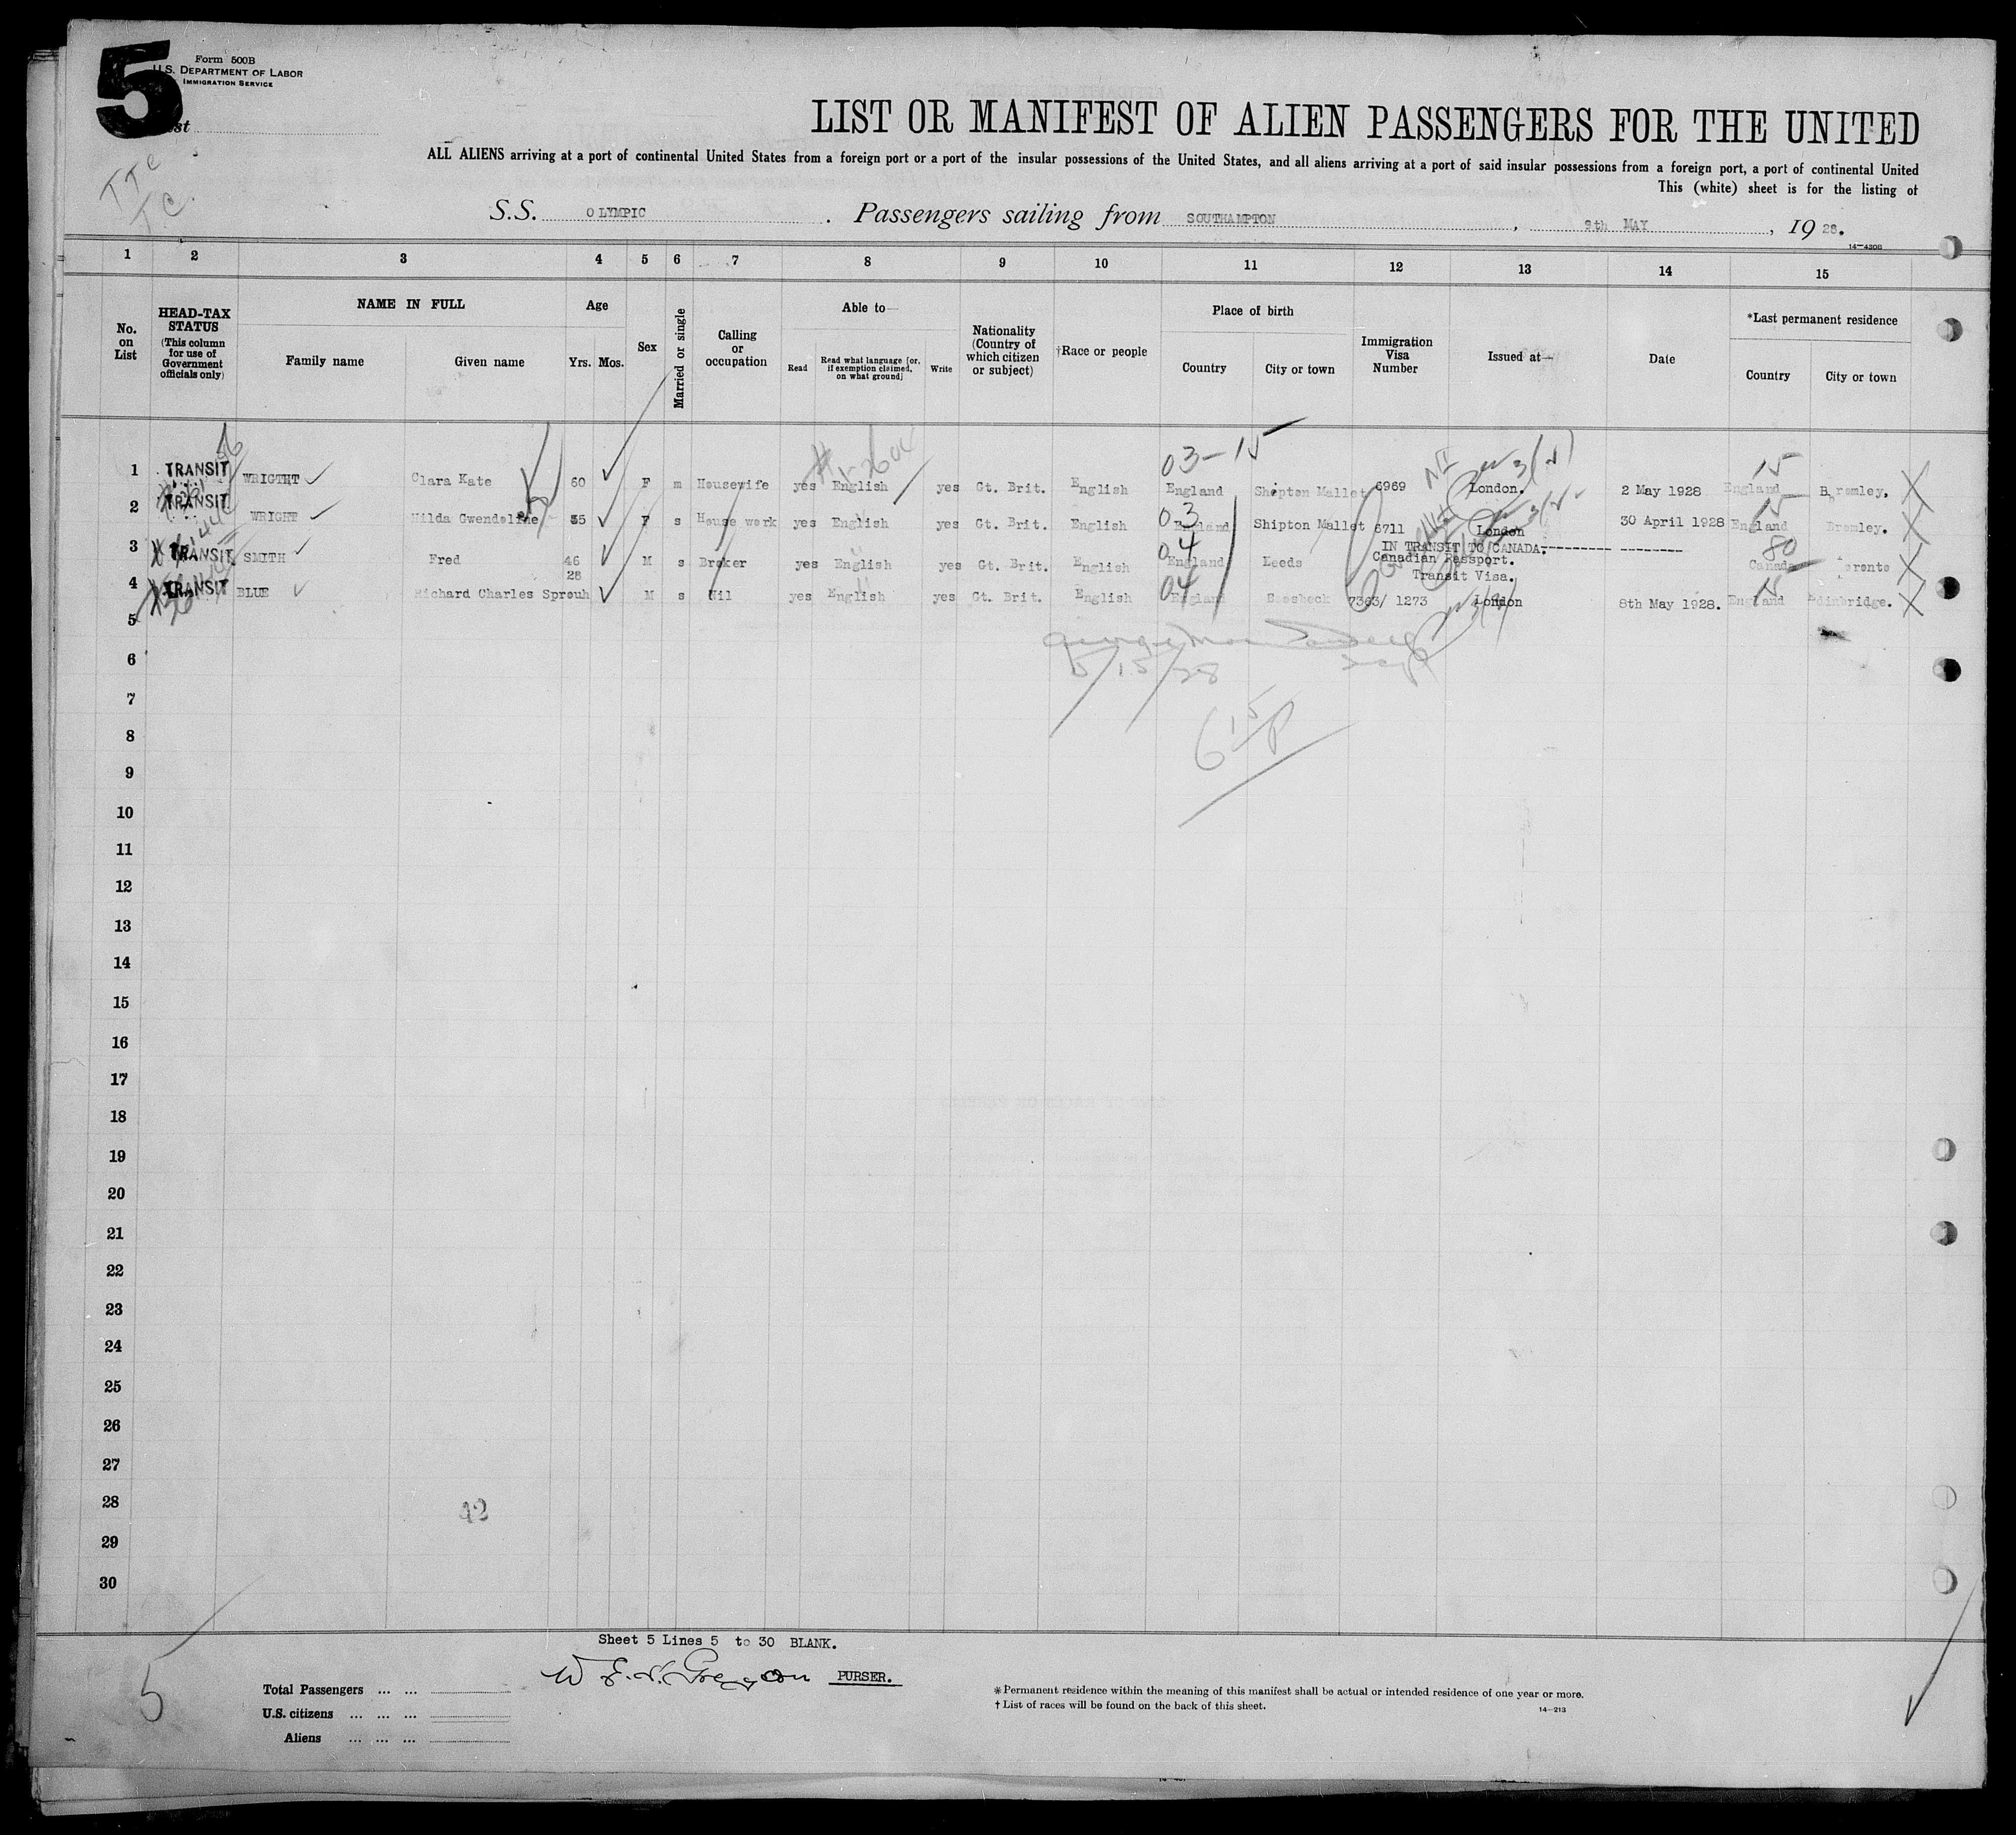 5
Form 500B
U.S. DEPARTMENT OF LABOR
IMMIGRATION SERVICE
LIST OR MANIFEST OF ALIEN PASSENGERS FOR THE UNITED
ALL ALIENS arriving at a port of continental United States from a foreign port or a port of the insular possessions of the United States, and all aliens arriving at a port of said insular possessions from a foreign port, a port of continental United
This (white) sheet is for the listing of
S.S. OLYMPIC. Passengers sailing from SOUTHAMPTON, 9th MAY, 1928.
14-430B
1 2 3 4 5 6 7 8 9 10 11 12 13 14 15
No. on List
HEAD-TAX STATUS
(This column for use of Government officials only)
NAME IN FULL
Family name Given name
Age
Yrs. Mos.
Sex
Married or single
Calling or occupation
Able to—
Read Read what language [or, if exemption claimed, on what ground] Write
Nationality (Country of which citizen or subject)
†Race or people
Place of birth
Country City or town
Immigration Visa Number
Issued at—
Date
*Last permanent residence
Country City or town
03-15
1 TRANSIT WRIGTHT Clara Kate 60 F m Housewife yes English yes Gt. Brit. English England Shepton Mallet 6969 London. 2 May 1928 England Bromley.
2 TRANSIT WRIGHT Hilda Gwendoline 35 F s House work yes English yes Gt. Brit. English England Shipton Mallet 6711 London 30 April 1928 England Bromley.
3 TRANSIT SMITH Fred 46 M s Broker yes English yes Gt. Brit. English England Leeds IN TRANSIT TO CANADA.
Canadian Passport. Canada
Transit Visa.
4 TRANSIT BLUE Richard Charles Sprouh 28 M s Nil yes English yes Gt. Brit. English England 7363/ 1273 London 8th May 1928. England Edinbridge.
5
5/15/28
6
7
8
9
10
11
12
13
14
15
16
17
18
19
20
21
22
23
24
25
26
27
28
42
29
30
Sheet 5 Lines 5 to 30 BLANK.
PURSER.
5
Total Passengers ... ...
U.S. citizens ... ... ...
Aliens ... ... ...
*Permanent residence within the meaning of this manifest shall be actual or intended residence of one year or more.
† List of races will be found on the back of this sheet.
14-213